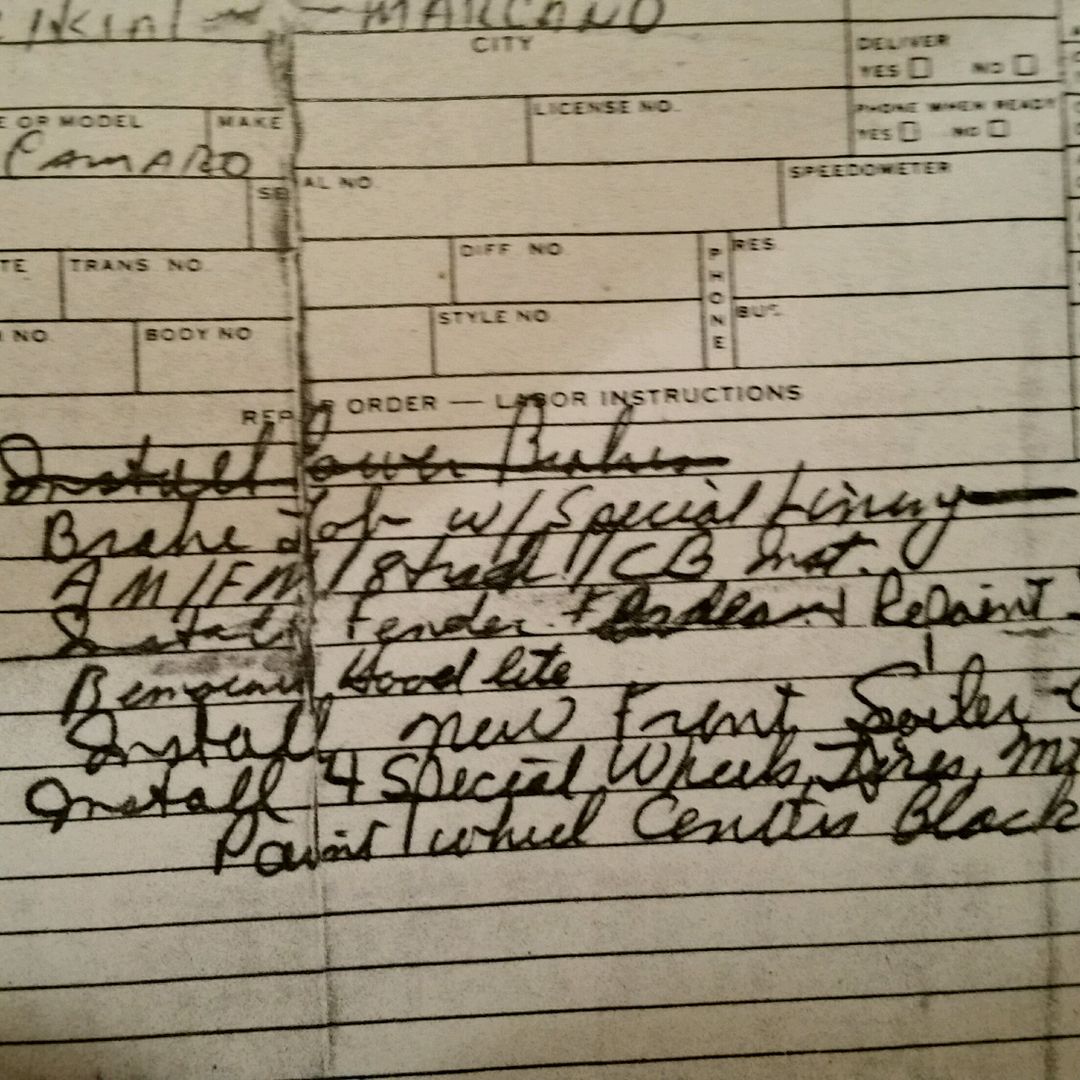 MARCANO
CITY
DELIVER
YES NO
E OR MODEL MAKE
LICENSE NO.
PHONE WHEN READY
YES NO
CAMARO
SE AL NO.
SPEEDOMETER
TE TRANS. NO.
DIFF. NO.
PHONE
RES.
NO. BODY NO.
STYLE NO.
BUS.
REPA R ORDER — LABOR INSTRUCTIONS
Install Power Brakes
Brake Job w/ Special Lining
AM/FM/8 track//CB Inst.
Install Fender + Repaint
Hood lite
Install new Front Spoiler
Install 4 Special Wheels, Tires,
Paint wheel Centers Black